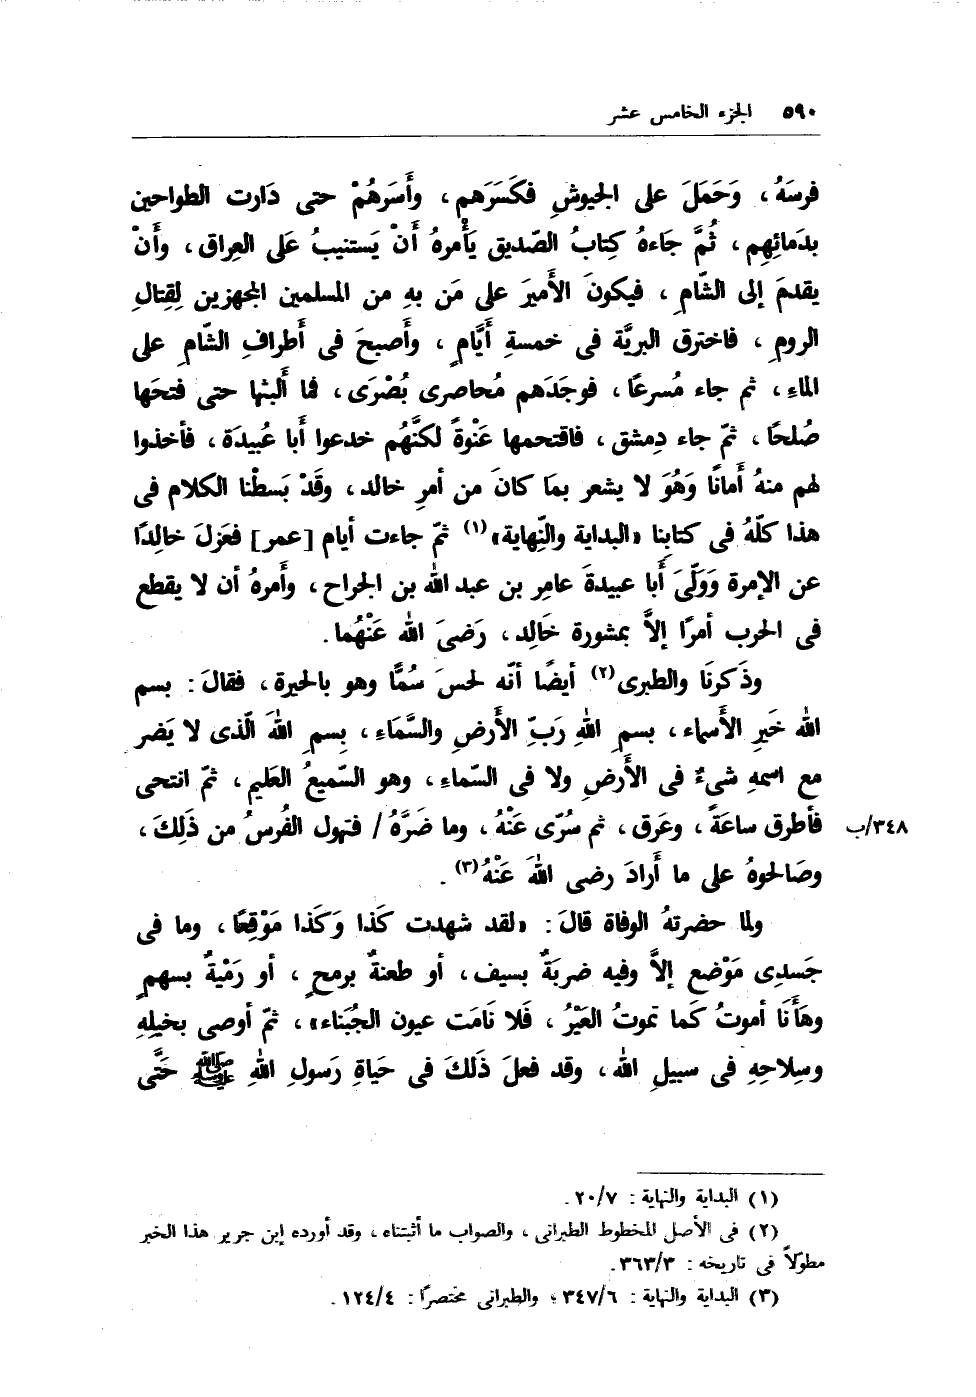 ٥٩٠ الجزء الخامس عشر
فرسَهُ ، وَحَمَلَ على الجيوشِ فكَسَرَهم ، وأَسَرَهُمْ حتى دَارت الطواحين
بدَمائِهِم ، ثُمَّ جَاءهُ كِتابُ الصّديق يَأْمرهُ أَنْ يَستنيبُ عَلى العِراق ، وأَنْ
يقدمَ إلى الشّامِ ، فيكونَ الأَميرَ على مَن بهِ من المسلمين المجهزين لِقِتالِ
الرومِ ، فاخترق البريَّة فى خمسةِ أَيَّامٍ ، وأَصبحَ فى أَطرافِ الشّامِ على
الماءِ ، ثم جاء مُسرعًا ، فوجَدَهم مُحاصرى بُصْرَى ، فما أَلبثها حتى فتحَها
صُلحًا ، ثمّ جاء دِمشق ، فاقتحمها عَنْوةً لكنَّهُم خدعوا أَبا عُبيدَة ، فأخذوا
لهم منهُ أَمانًا وَهُوَ لا يشعر بمَا كانَ من أمرِ خالد ، وقَدْ بَسطْنا الكلام فى
هذا كلّهُ فى كتابِنا «البداية والنّهاية»(١) ثمّ جاءت أيام [عمر] فعَزلَ خالِدًا
عن الإمرة وَوَلّىَ أَبا عبيدةَ عامِر بن عبد الله بن الجراح ، وأَمرهُ أن لا يقطع
فى الحرب أمرًا إلاَّ بمشورة خَالِد ، رَضىَ الله عَنْهُما .
وذَكرنَا والطبرى(٢) أيضًا أنّه لحسَ سُمًّا وهو بالحيرة ، فقالَ : بسم
الله خَيرِ الأَسماء ، بسمِ اللهِ رَبّ الأَرضِ والسَّمَاءِ ، بِسمِ اللهَ الّذى لا يَضر
مع اسمهِ شىءٌ فى الأَرضِ ولا فى السّماءِ ، وهو السّميعُ العَليم ، ثمّ انتحى
فأطرق ساعَةً ، وعَرق ، ثم سُرّى عَنْهُ ، وما ضَرَّهُ / فتهول الفُرسُ من ذَلِكَ ، ٣٤٨/ب
وصَالحوهُ على ما أَرادَ رضى اللهَ عَنْهُ(٣) .
ولما حضرتهُ الوفاة قالَ : «لقد شهدت كَذا وَكَذا مَوْقِعًا ، وما فى
جَسدِى مَوْضع إلاَّ وفيه ضربَةٌ بسيف ، أو طعنةٌ برمحٍ ، أو رَمْيةٌ بسهمٍ
وهَأَنَا أموتُ كَما تموتُ العَيْرُ ، فَلا نَامَت عيون الجُبَناء» ، ثمّ أوصى بخيلِهِ
وسِلاحِهِ فى سبيلِ الله ، وقد فعلَ ذَلكَ فى حَياةِ رَسولِ اللهِ ﷺ حَتَّى
(١) البداية والنهاية : ٢٠/٧ .
(٢) فى الأصل المخطوط الطبرانى ، والصواب ما أثبتناه ، وقد أورده إبن جرير هذا الخبر
مطولاً فى تاريخه : ٣٦٣/٣ .
(٣) البداية والنهاية : ٣٤٧/٦ ؛ والطبرانى مختصرًا : ١٢٤/٤ .